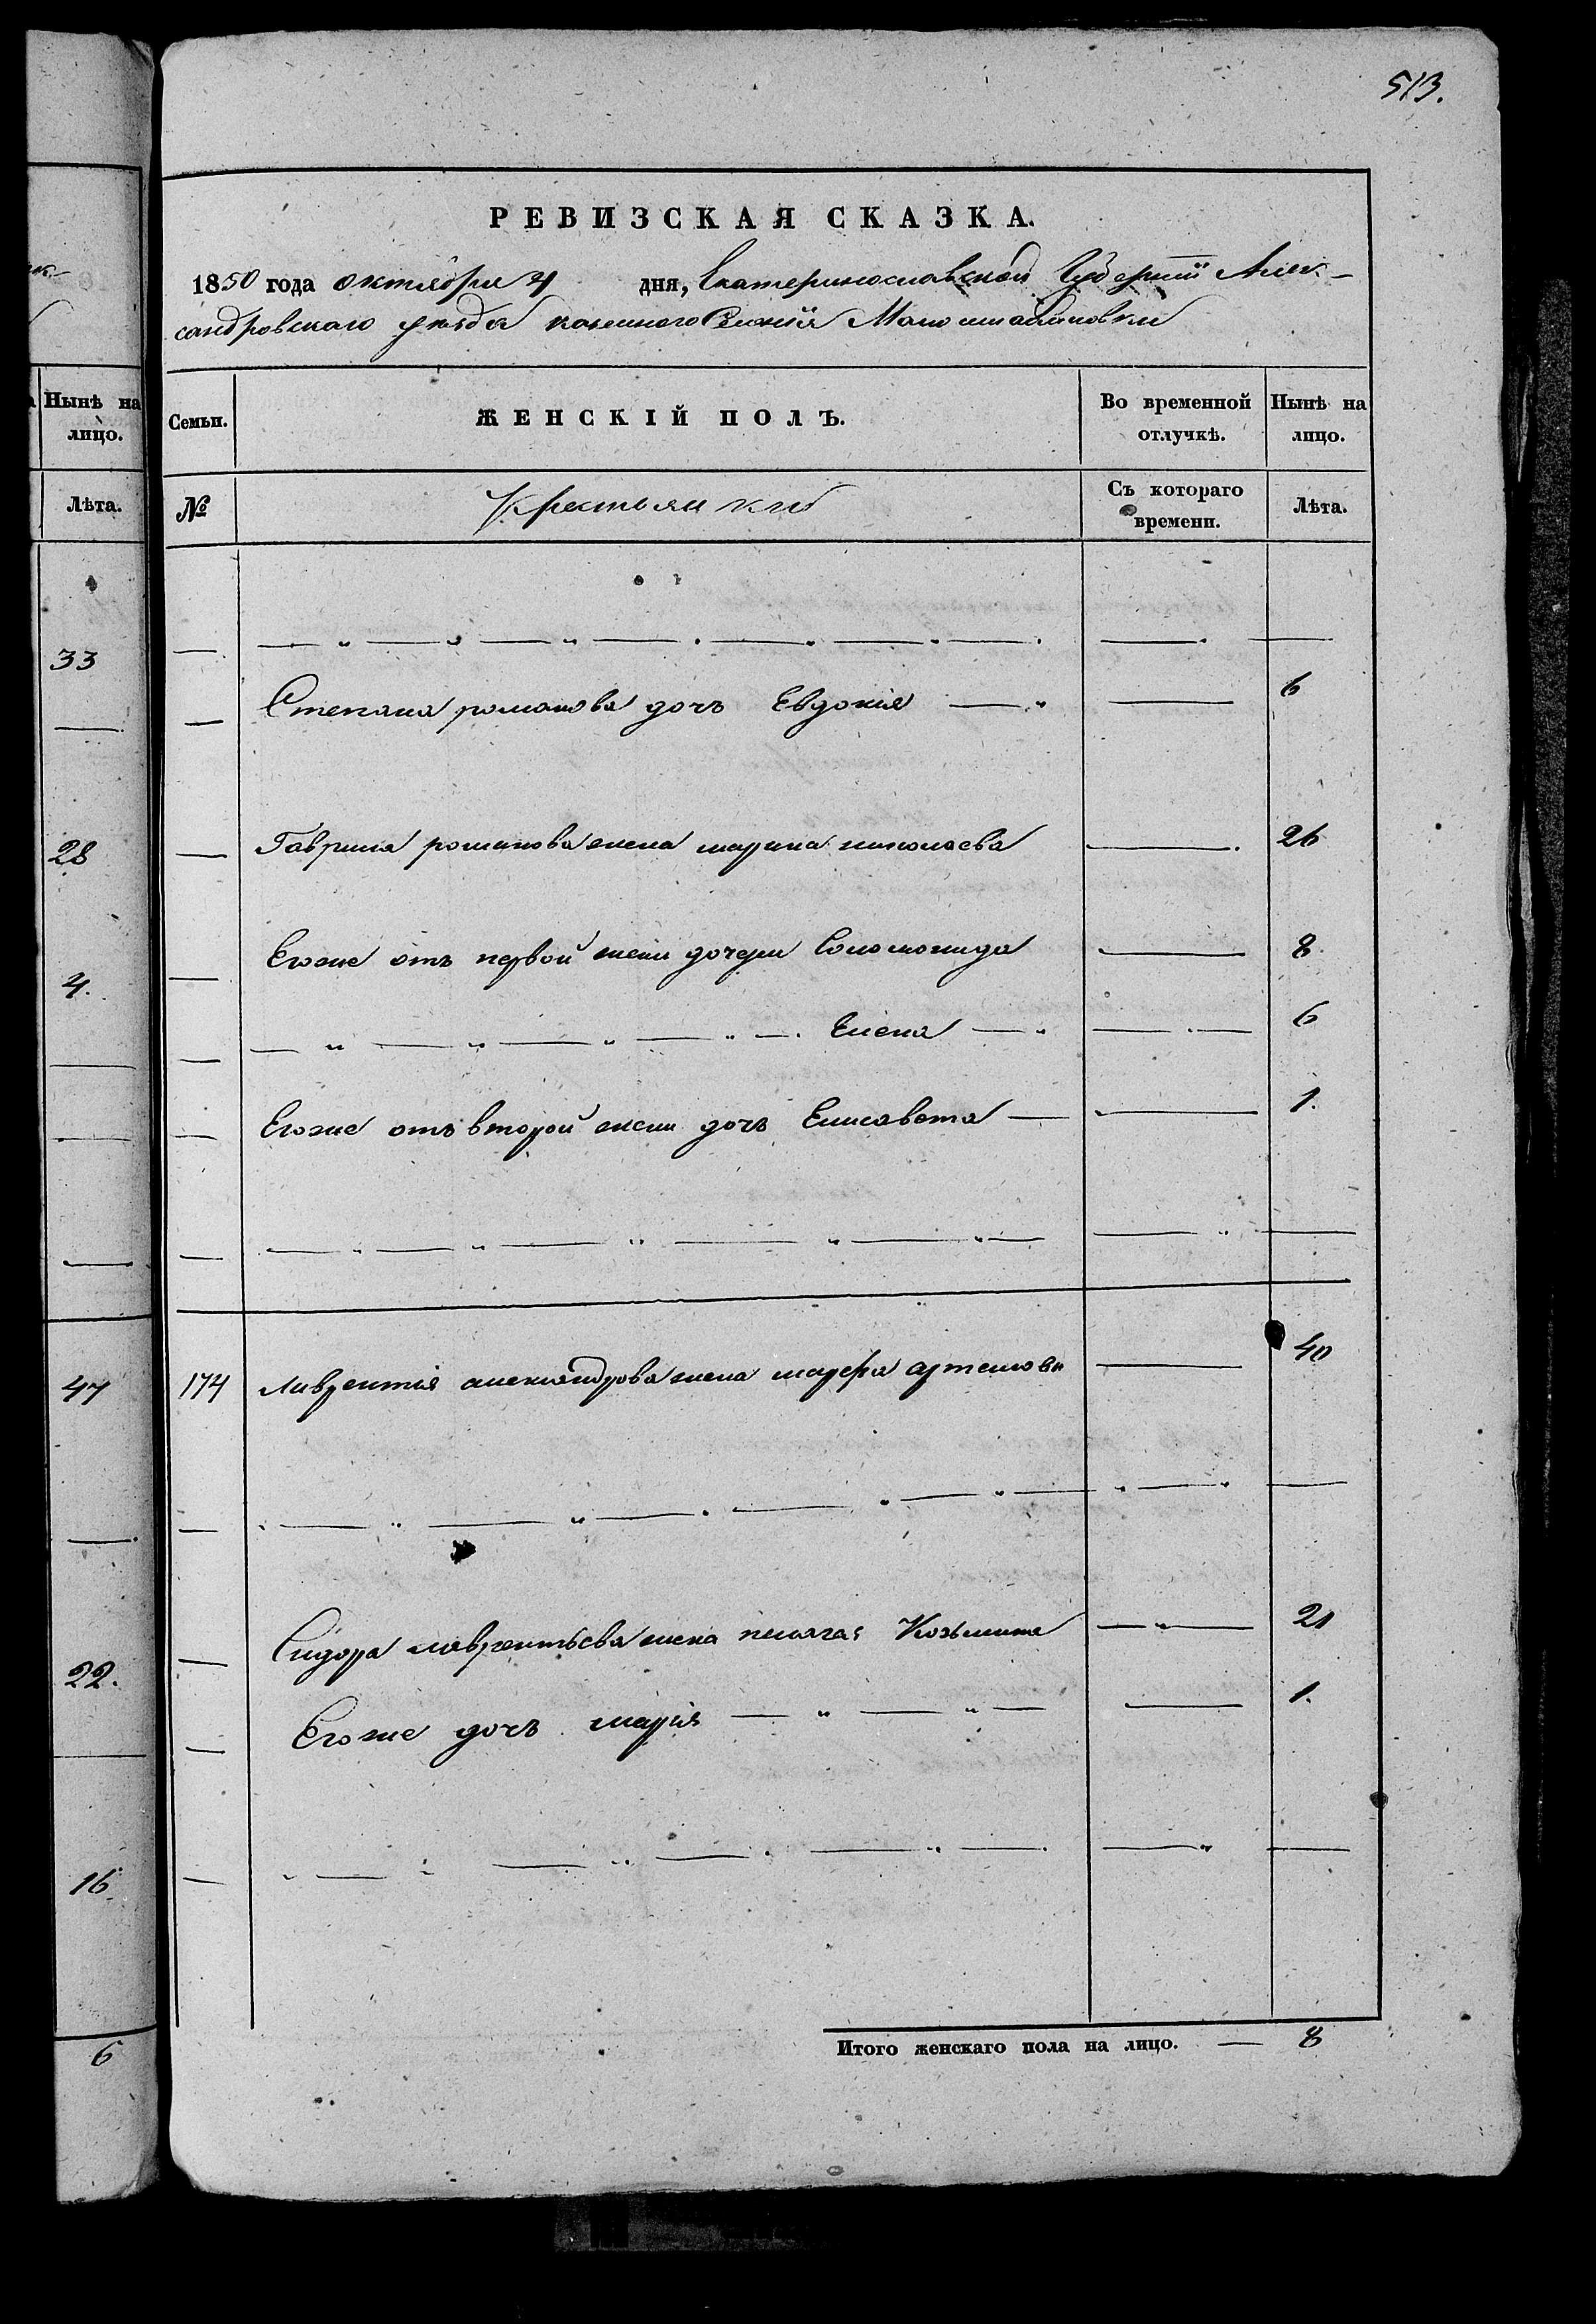 513.
РЕВИЗСКАЯ СКАЗКА.
1850 года октября 4 дня, Екатеринославской Губернии Алек-
сандровскаго уезда казенного Селения Маломихайловки
Нынѣ на лицо.
Семьи.
ЖЕНСКІЙ ПОЛЪ.
Во временной отлучкѣ.
Нынѣ на лицо.
Лѣта.
№
Крестьянки
Съ котораго времени.
Лѣта.
33
Степана романова дочь Евдокия 6
28
Гаврила романова жена марина николаева 26
4.
Егоже отъ первой жены дочери Соломонида 8.
Елена 6
Егоже отъ второй жены дочь Елисавета 1.
47
174 Лаврентія александрова жена марфа артемова 40
22.
Сидора лаврентьева жена пелагея Козьмина 21
Егоже дочь марія 1.
16
6
Итого женскаго пола на лицо. 8